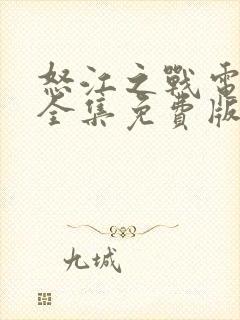 怒江之戰電
全集免費版
九城